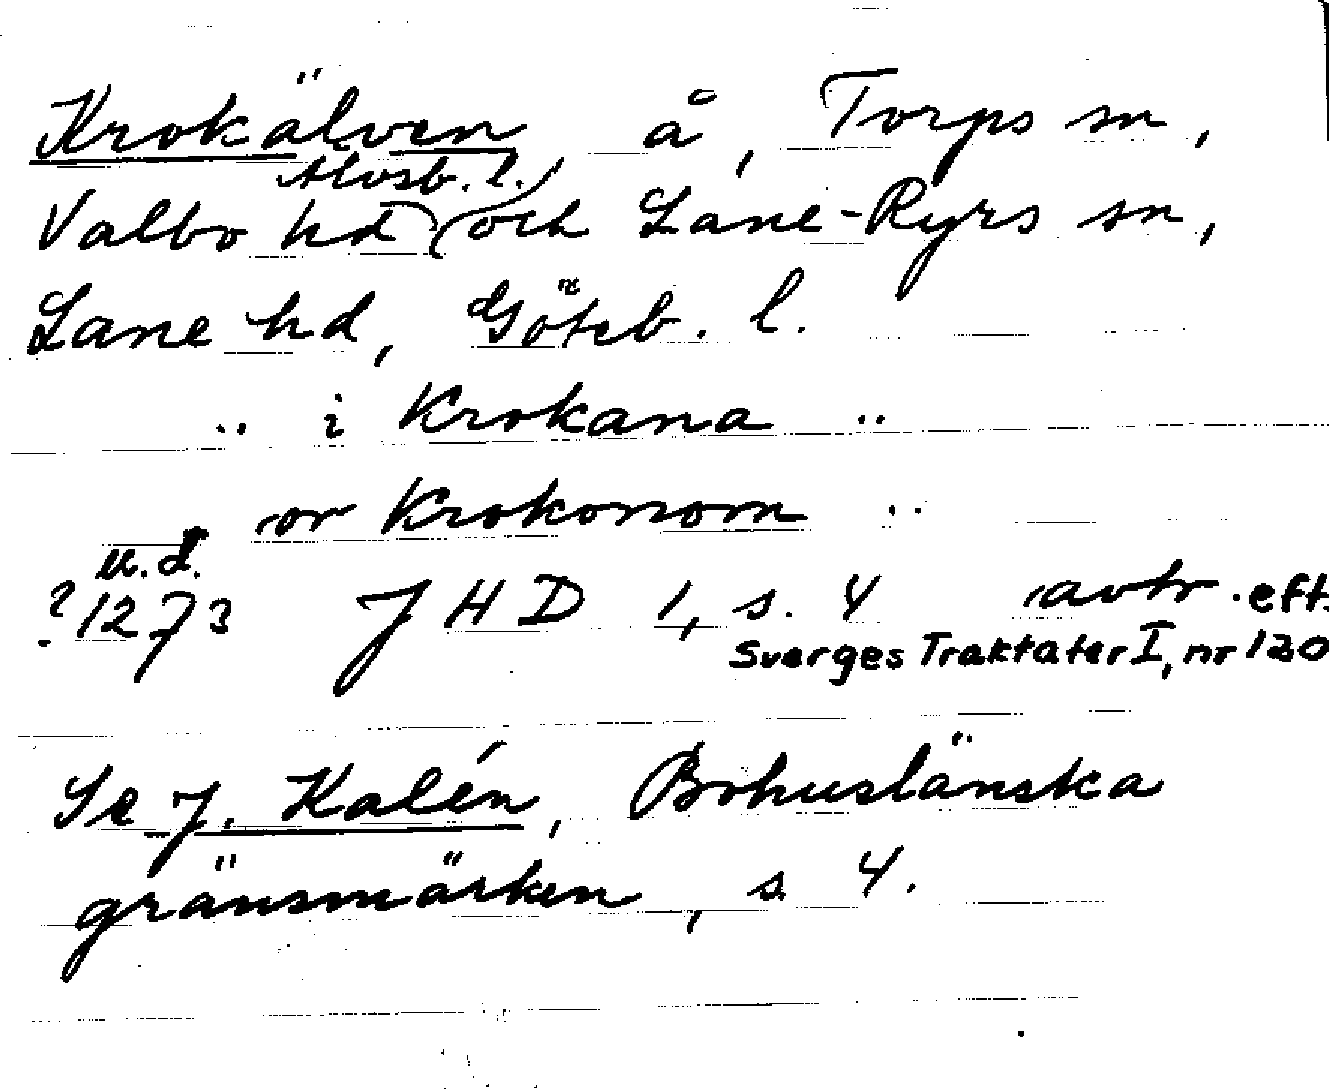 Krokälven å, Torps sn,
Älvsb. l.
Valbo hd och Lane-Ryrs sn,
Lane hd, Göteb. l.
.. i Krokana ..
or Krokonom ..
u.d.
? 1273 JHD 1, s. 4 avtr. eft.
Sverges Traktater I, nr 120
Se J. Kalén, Bohuslänska
gränsmärken, s 4.